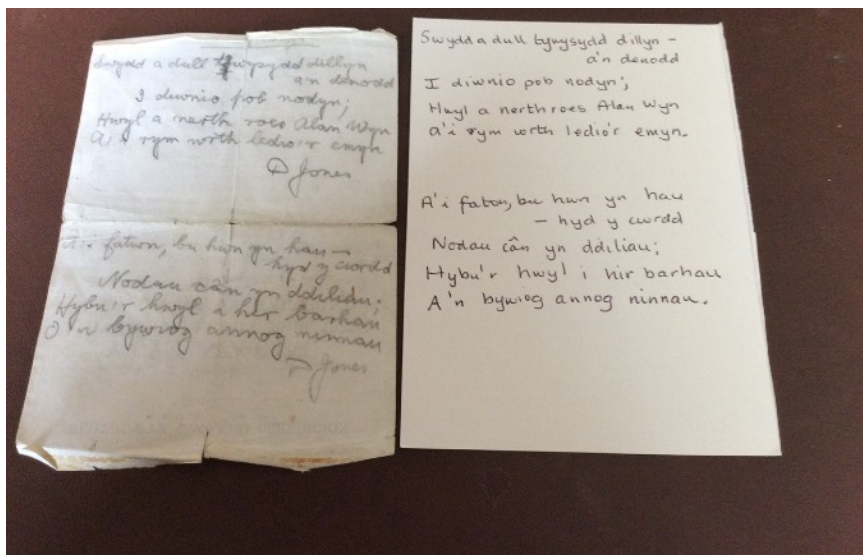 Swydd a dull tywysydd dillyn
a'n denodd
I diwnio pob nodyn;
Hwyl a nerth roes Alan Wyn
A'i rym wrth ledio'r emyn
D Jones
A'i fatwn, bu hwn yn hau —
hyd y cwrdd
Nodau cân yn ddiliau.
Hybu'r hwyl i hir barhau
O'n bywiog annog ninnau
D Jones
Swydd a dull tywysydd dillyn –
a'n denodd
I diwnio pob nodyn;
Hwyl a nerth roes Alan Wyn
a'i rym wrth ledio'r emyn.
A'i faton, bu hwn yn hau
– hyd y cwrdd
Nodau cân yn ddiliau;
Hybu'r hwyl i hir barhau
A'n bywiog annog ninnau.